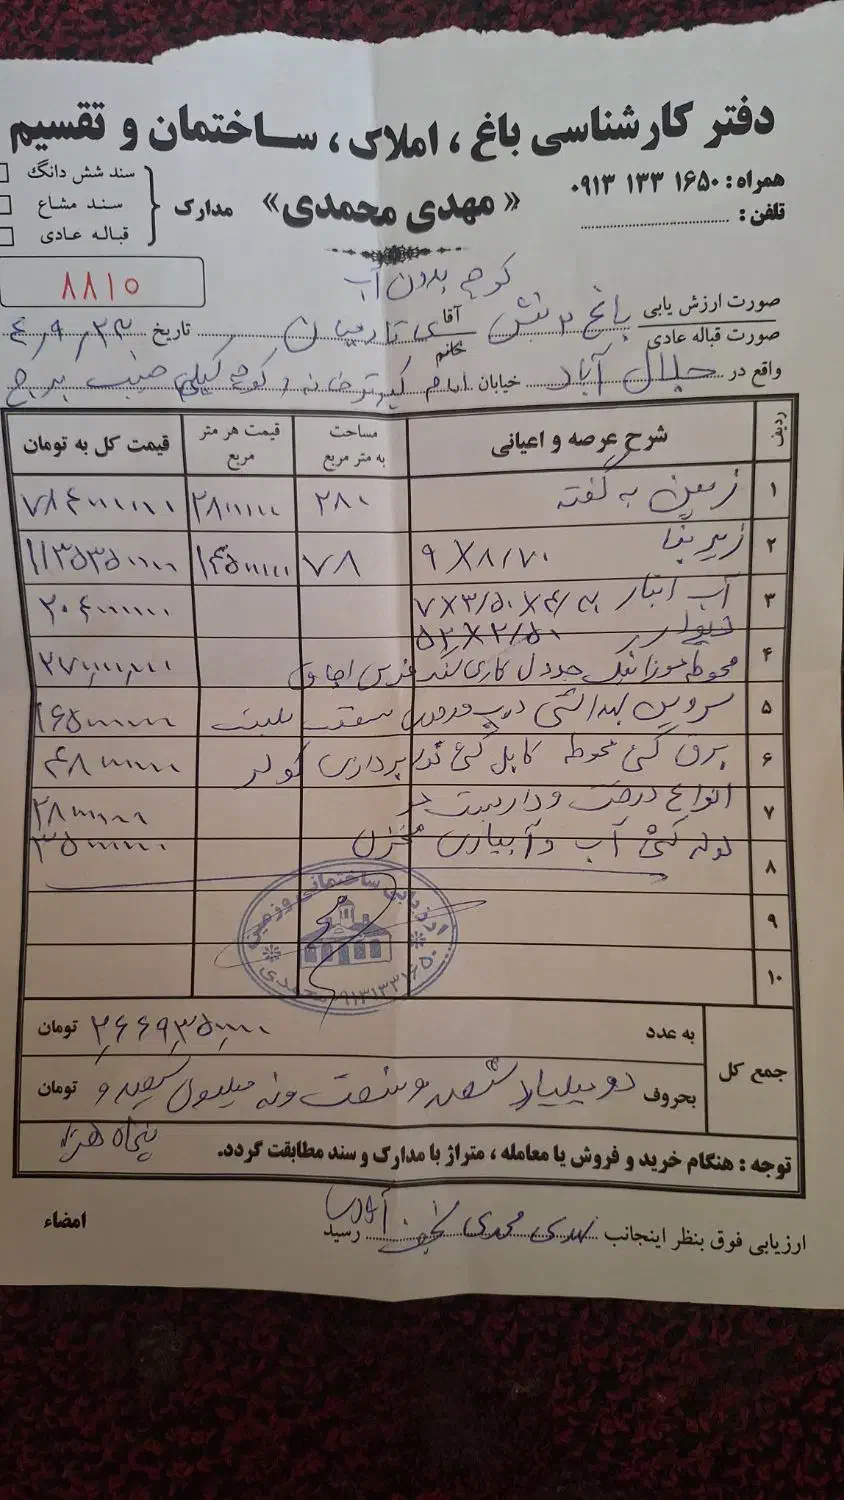 دفتر کارشناسی باغ ، املاک ، ساختمان و تقسیم
همراه : ۱۶۵۰ ۱۳۳ ۰۹۱۳
تلفن :
« مهدی محمدی »
مدارک
سند شش دانگ
سند مشاع
قباله عادی
۸۸۱۵
کوچه بدون آب
صورت ارزش یابی
صورت قباله عادی
باغ منش آقای
خانم
تاریخ ۲۳ ر ۹ ر ۴
واقع در جلال آباد خیابان امام کبوترخانه کوچه جنب برج
ردیف شرح عرصه و اعیانی مساحت به متر مربع قیمت هر متر مربع قیمت کل به تومان
۱ زمین به گفته ۲۸۰ ۲۸۰۰۰۰۰ ۷۸۴۰۰۰۰۰۰
۲ زیربنا ۹ X ۸/۷۰ ۷۸ ۱۴۵۰۰۰۰۰ ۱۱۳۵۳۵۰۰۰۰
۳ آب انبار ۷X۳/۵۰X۴/ ۲۰۴۰۰۰۰۰۰
۴ دیوار ۵۲X۲/۵۰
محوطه موزائیک جدول کاری اجاق ۲۷۰,۰۰۰,۰۰۰
۵ سرویس بهداشتی درب ورودی سقف ۱۶۵۰۰۰۰۰۰
۶ برق کشی محوطه کابل کشی نورپردازی کولر ۴۸۰۰۰۰۰۰
۷ انواع درخت و داربست ۲۸۰۰۰۰۰۰
۸ لوله کشی آب و آبیاری مخزن ۳۵۰۰۰۰۰۰
۹
۱۰
ارزیابی ساختمانی و زمین
محمدی ۰۹۱۳۱۳۳۱۶۵۰
جمع کل
به عدد ۲,۶۶۹,۳۵۰,۰۰۰ تومان
بحروف دو میلیارد ششصد و شصت و نه میلیون سیصد و تومان
پنجاه هزار
توجه : هنگام خرید و فروش یا معامله ، متراژ با مدارک و سند مطابقت گردد.
ارزیابی فوق بنظر اینجانب مهدی محمدی رسید
امضاء